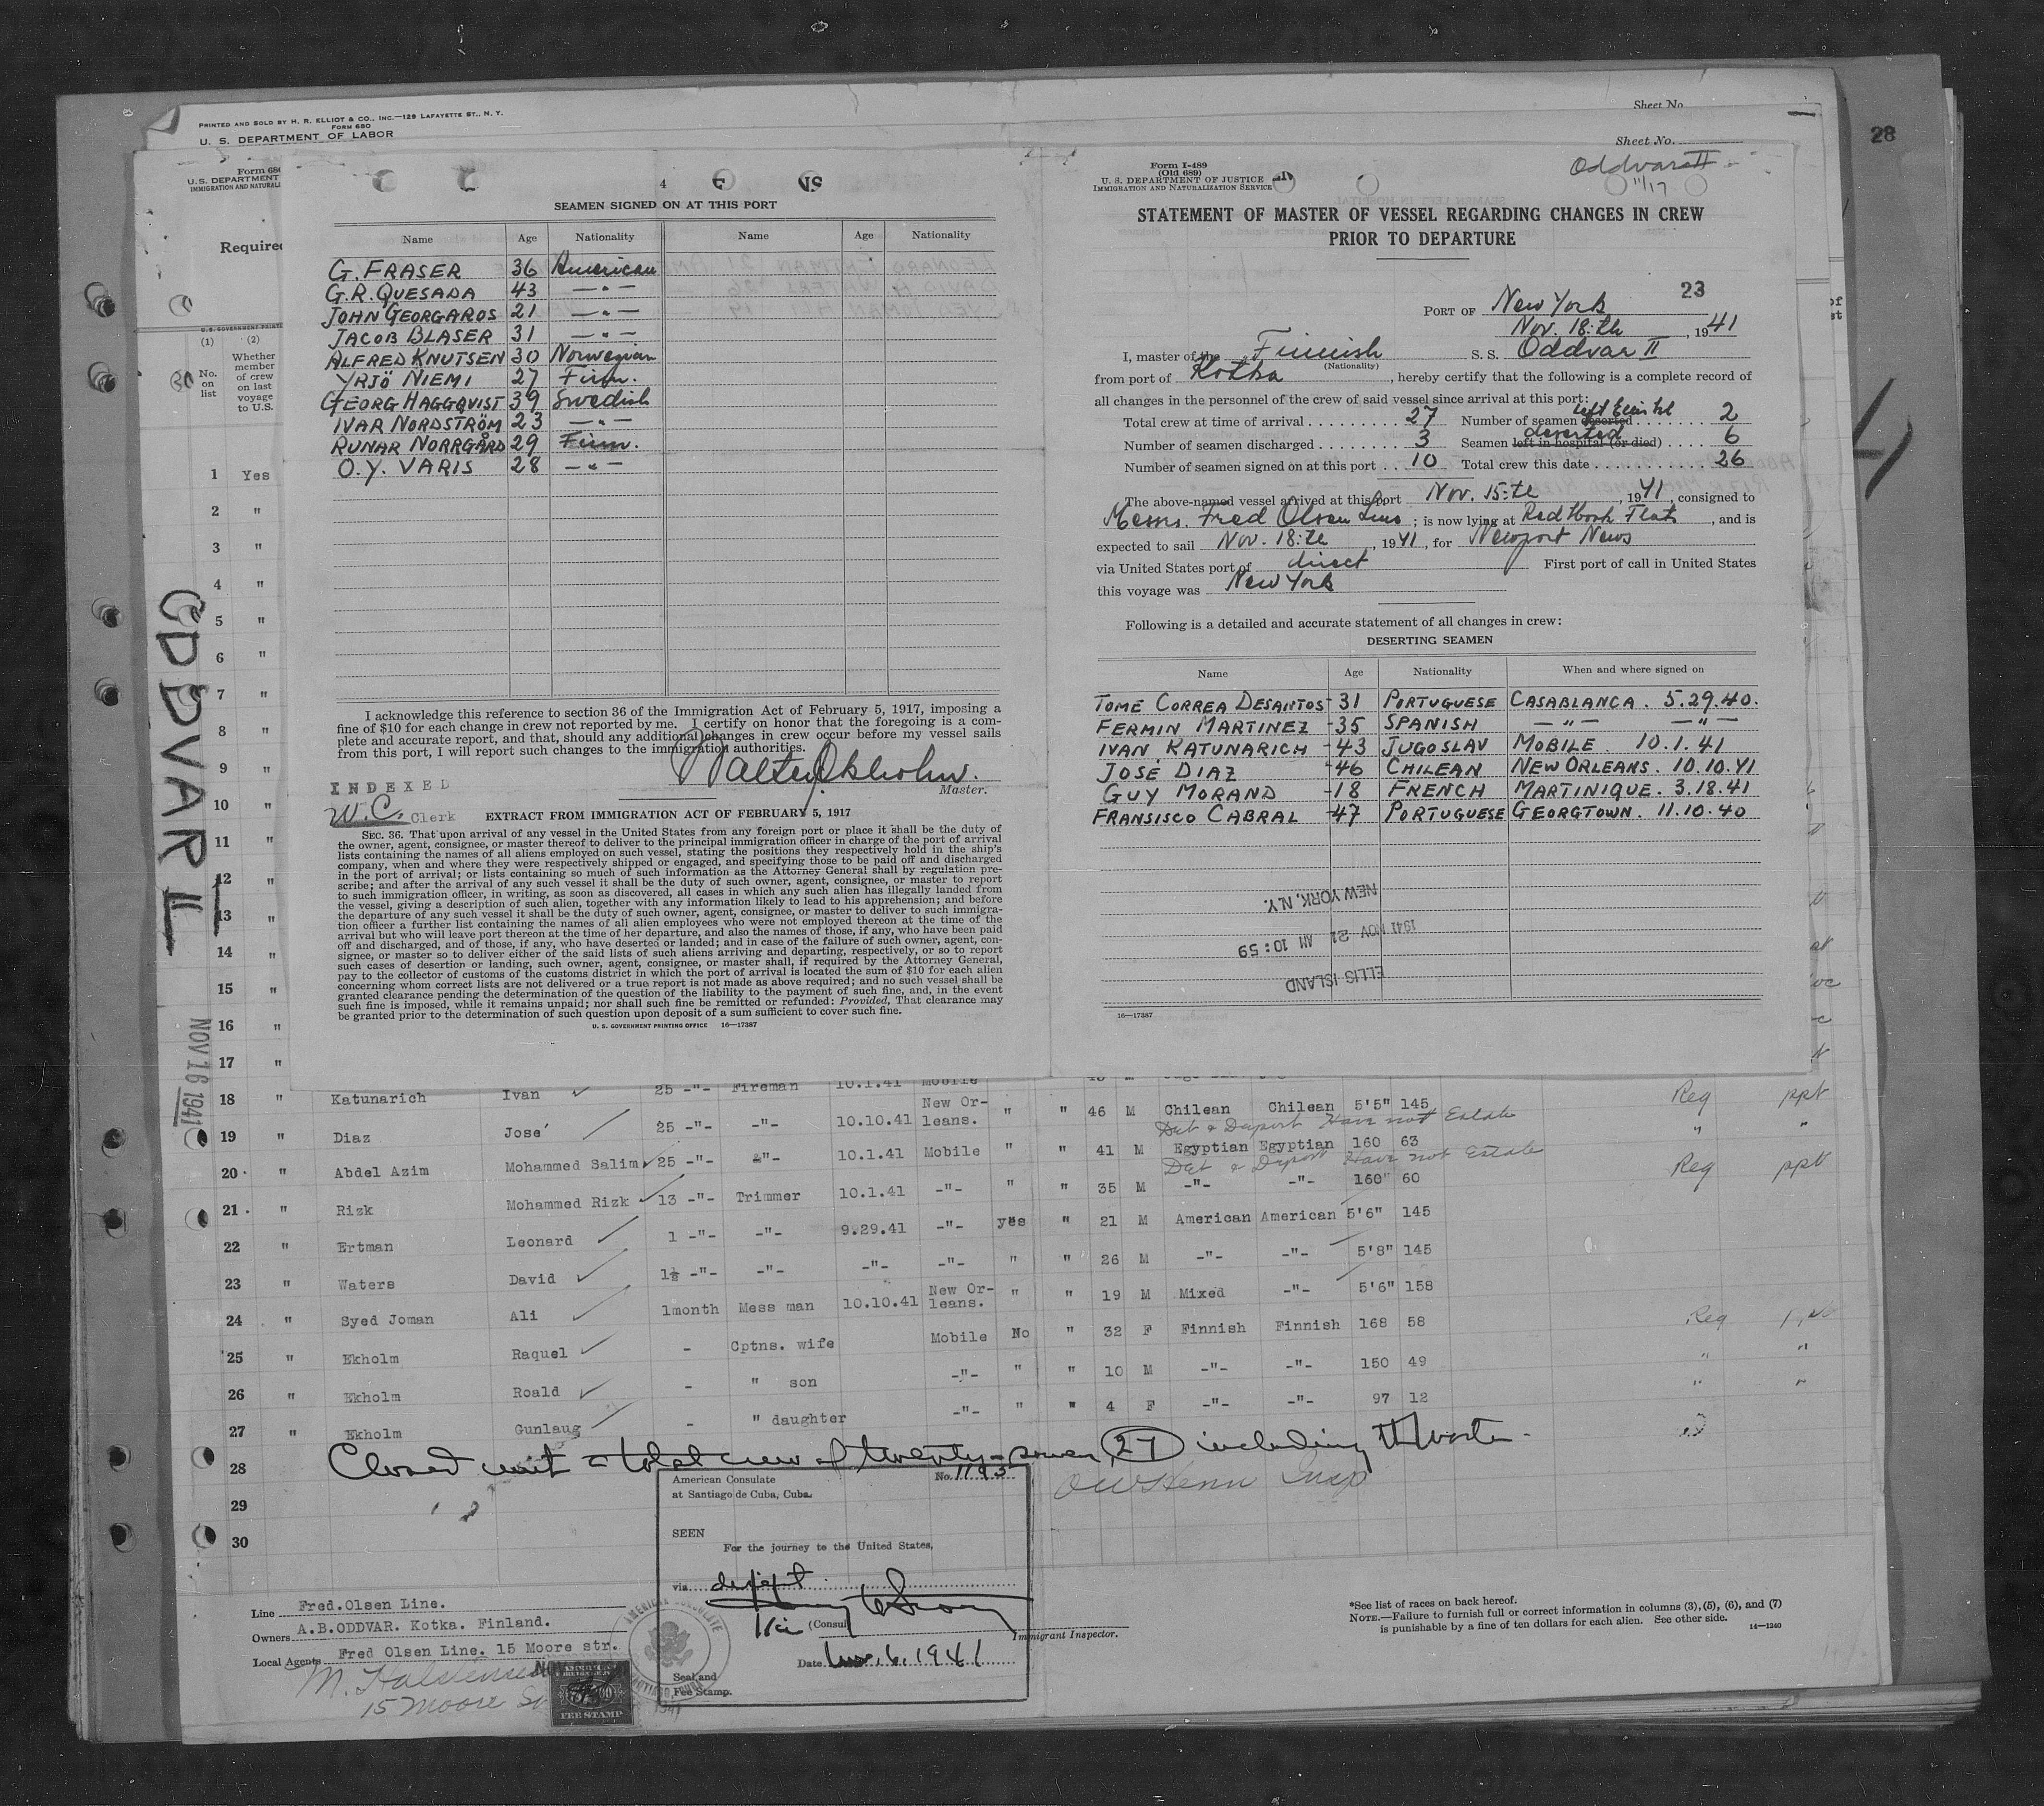 PRINTED AND SOLD BY H. R. ELLIOT & CO., INC.—129 LAFAYETTE ST., N. Y.
FORM 680
U. S. DEPARTMENT OF LABOR
Sheet No.
Sheet No.
28
Form 680
U. S. DEPARTMENT
IMMIGRATION AND NATURALI
Required
U. S. GOVERNMENT PRINTI
(1) (2)
No. on list
Whether member of crew on last voyage to U.S.
30
ODDVAR II
NOV 16 1941
4
SEAMEN SIGNED ON AT THIS PORT
Name Age Nationality Name Age Nationality
G. FRASER 36 American
G.R. QUESADA 43 —"—
JOHN GEORGAROS 21 —"—
JACOB BLASER 31 —"—
ALFRED KNUTSEN 30 Norwegian
YRJÖ NIEMI 27 Finn.
GEORG HAGGQVIST 39 Swedish
IVAR NORDSTRÖM 23 —"—
RUNAR NORRGÅRD 29 Finn.
O.Y. VARIS 28 —"—
I acknowledge this reference to section 36 of the Immigration Act of February 5, 1917, imposing a
fine of $10 for each change in crew not reported by me. I certify on honor that the foregoing is a com-
plete and accurate report, and that, should any additional changes in crew occur before my vessel sails
from this port, I will report such changes to the immigration authorities.
Walter Ekholm.
Master.
INDEXED
W.C. Clerk
EXTRACT FROM IMMIGRATION ACT OF FEBRUARY 5, 1917
SEC. 36. That upon arrival of any vessel in the United States from any foreign port or place it shall be the duty of
the owner, agent, consignee, or master thereof to deliver to the principal immigration officer in charge of the port of arrival
lists containing the names of all aliens employed on such vessel, stating the positions they respectively hold in the ship's
company, when and where they were respectively shipped or engaged, and specifying those to be paid off and discharged
in the port of arrival; or lists containing so much of such information as the Attorney General shall by regulation pre-
scribe; and after the arrival of any such vessel it shall be the duty of such owner, agent, consignee, or master to report
to such immigration officer, in writing, as soon as discovered, all cases in which any such alien has illegally landed from
the vessel, giving a description of such alien, together with any information likely to lead to his apprehension; and before
the departure of any such vessel it shall be the duty of such owner, agent, consignee, or master to deliver to such immigra-
tion officer a further list containing the names of all alien employees who were not employed thereon at the time of the
arrival but who will leave port thereon at the time of her departure, and also the names of those, if any, who have been paid
off and discharged, and of those, if any, who have deserted or landed; and in case of the failure of such owner, agent, con-
signee, or master so to deliver either of the said lists of such aliens arriving and departing, respectively, or so to report
such cases of desertion or landing, such owner, agent, consignee, or master shall, if required by the Attorney General,
pay to the collector of customs of the customs district in which the port of arrival is located the sum of $10 for each alien
concerning whom correct lists are not delivered or a true report is not made as above required; and no such vessel shall be
granted clearance pending the determination of the question of the liability to the payment of such fine, and, in the event
such fine is imposed, while it remains unpaid; nor shall such fine be remitted or refunded: Provided, That clearance may
be granted prior to the determination of such question upon deposit of a sum sufficient to cover such fine.
U. S. GOVERNMENT PRINTING OFFICE 16—17387
Form I-489
(Old 689)
U. S. DEPARTMENT OF JUSTICE
IMMIGRATION AND NATURALIZATION SERVICE
Oddvar II
11/17
STATEMENT OF MASTER OF VESSEL REGARDING CHANGES IN CREW
PRIOR TO DEPARTURE
23
PORT OF New York
Nov. 18:th, 1941
I, master of the Finnish S. S. Oddvar II
(Nationality)
from port of Kotka, hereby certify that the following is a complete record of
all changes in the personnel of the crew of said vessel since arrival at this port:
Total crew at time of arrival 27 Number of seamen deserted 2
Number of seamen discharged 3 Seamen left in hospital (or died) deserted 6
Number of seamen signed on at this port 10 Total crew this date 26
The above-named vessel arrived at this port Nov. 15:th, 1941, consigned to
Messrs. Fred Olsen Line; is now lying at Red Hook Flats, and is
expected to sail Nov. 18:th, 1941, for Newport News
via United States port of direct First port of call in United States
this voyage was New York
Following is a detailed and accurate statement of all changes in crew:
DESERTING SEAMEN
Name Age Nationality When and where signed on
TOME CORREA DESANTOS 31 PORTUGUESE CASABLANCA. 5.29.40.
FERMIN MARTINEZ 35 SPANISH —"— —"—
IVAN KATUNARICH 43 JUGOSLAV MOBILE 10.1.41
JOSÉ DIAZ 46 CHILEAN NEW ORLEANS. 10.10.41
GUY MORAND 18 FRENCH MARTINIQUE. 3.18.41
FRANSISCO CABRAL 47 PORTUGUESE GEORGTOWN. 11.10.40
NEW YORK, N.Y.
1941 NOV 21 AM 10:59
ELLIS ISLAND
16—17387
1 Yes
2 "
3 "
4 "
5 "
6 "
7 "
8 "
9 "
10 "
11 "
12 "
13 "
14 "
15 "
16 "
17 "
18 " Katunarich Ivan 25 -"- Fireman 10.1.41 Mobile
19 " Diaz José 25 -"- -"- 10.10.41 New Orleans. " " 46 M Chilean Chilean 5'5" 145 Req ppt
Det & Deport Have not Estate
20 " Abdel Azim Mohammed Salim 25 -"- -"- 10.1.41 Mobile " " 41 M Egyptian Egyptian 160 63 " "
Det & Deport Have not Estate
21 " Rizk Mohammed Rizk 13 -"- Trimmer 10.1.41 -"- " " 35 M -"- -"- 160 60 Req ppt
22 " Ertman Leonard 1 -"- -"- 9.29.41 -"- yes " 21 M American American 5'6" 145
23 " Waters David 1½ -"- -"- -"- -"- " " 26 M -"- -"- 5'8" 145
24 " Syed Joman Ali 1month Mess man 10.10.41 New Orleans. " " 19 M Mixed -"- 5'6" 158
25 " Ekholm Raquel - Cptns. wife Mobile No " 32 F Finnish Finnish 168 58 Req
26 " Ekholm Roald - " son -"- " " 10 M -"- -"- 150 49 " "
27 " Ekholm Gunlaug - " daughter -"- " " 4 F -"- -"- 97 12 " "
28 Closed with a total crew of twenty-seven (27) including Master.
29
30
American Consulate No. 1193
at Santiago de Cuba, Cuba.
SEEN
For the journey to the United States,
via
Vice (Consul
Date Nov. 6, 1941
Seal and
Fee Stamp.
AMERICAN CONSULATE
SANTIAGO, CUBA
FEE STAMP
Immigrant Inspector.
Line Fred.Olsen Line.
Owners A.B.ODDVAR. Kotka. Finland.
Local Agents Fred Olsen Line. 15 Moore str.
15 Moore St
*See list of races on back hereof.
NOTE.—Failure to furnish full or correct information in columns (3), (5), (6), and (7)
is punishable by a fine of ten dollars for each alien. See other side. 14—1240